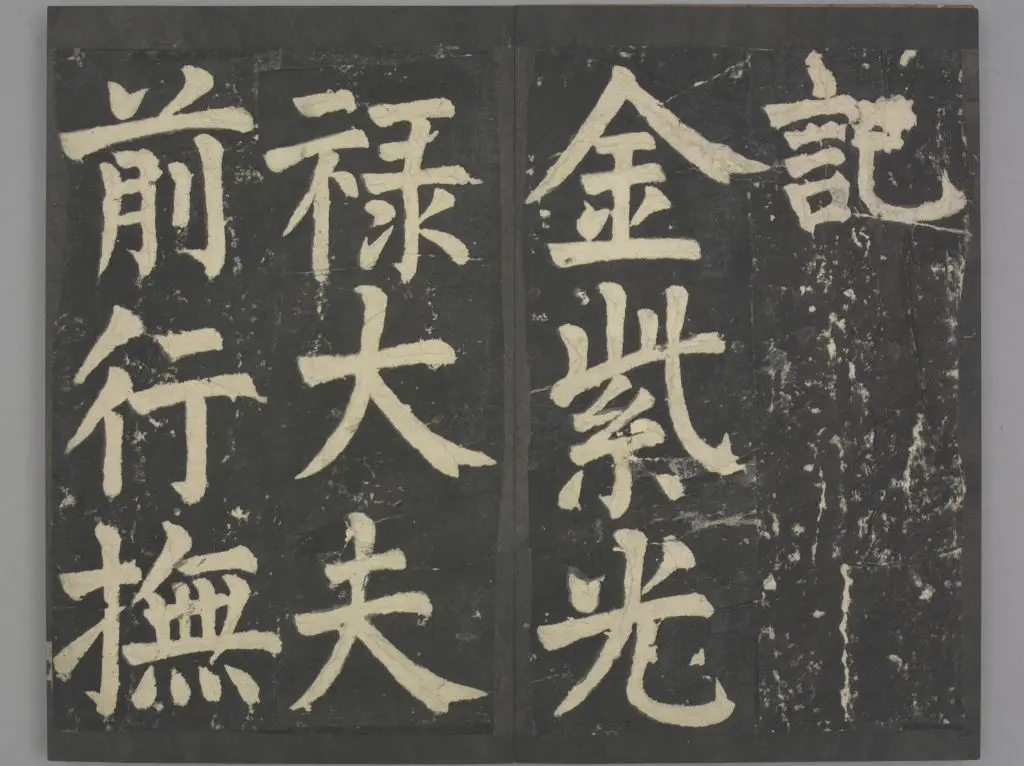 記
金紫光
禄大夫
前行撫